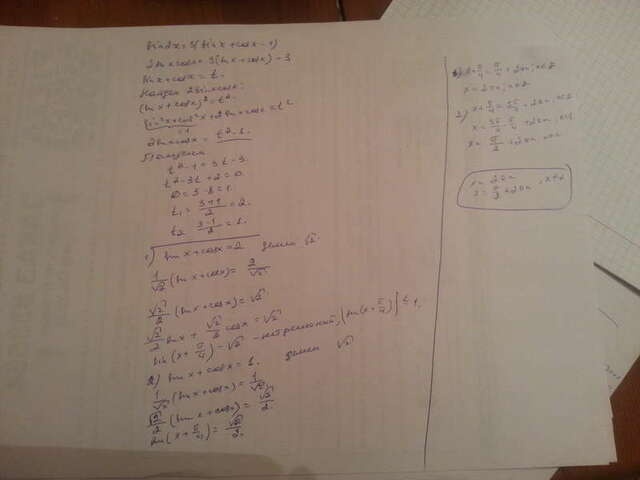 sin2x=3(sinx+cosx-1)
2sinxcosx=3(sinx+cosx)-3
sinx+cosx=t.
Найдем 2sinxcosx:
(sinx+cosx)²=t².
sin²x+cos²x+2sinxcosx=t²
=1
2sinxcosx=t²-1.
Получаем
t²-1=3t-3.
t²-3t+2=0
D=9-8=1.
t₁=\frac{3+1}{2}=2.
t₂=\frac{3-1}{2}=1.
1) sinx+cosx=2 делим √2
\frac{1}{√2}(sinx+cosx)=\frac{2}{√2}
\frac{√2}{2}(sinx+cosx)=√2
\frac{√2}{2}sinx+\frac{√2}{2}cosx=√2
sin(x+\frac{π}{4})=√2 - нет решений, |sin(x+\frac{π}{4})|≤1
2) sinx+cosx=1. делим √2
\frac{1}{√2}(sinx+cosx)=\frac{1}{√2}
\frac{√2}{2}(sinx+cosx)=\frac{√2}{2}
sin(x+\frac{π}{4})=\frac{√2}{2}.
x+\frac{π}{4}=\frac{π}{4}+2πn; n∈Z
x=2πn; n∈Z
2) x+\frac{π}{4}=\frac{3π}{4}+2πn, n∈Z
x=\frac{3π}{4}-\frac{π}{4}+2πn, n∈Z
x=\frac{π}{2}+2πn, n∈Z
x=2πn
x=\frac{π}{2}+2πn